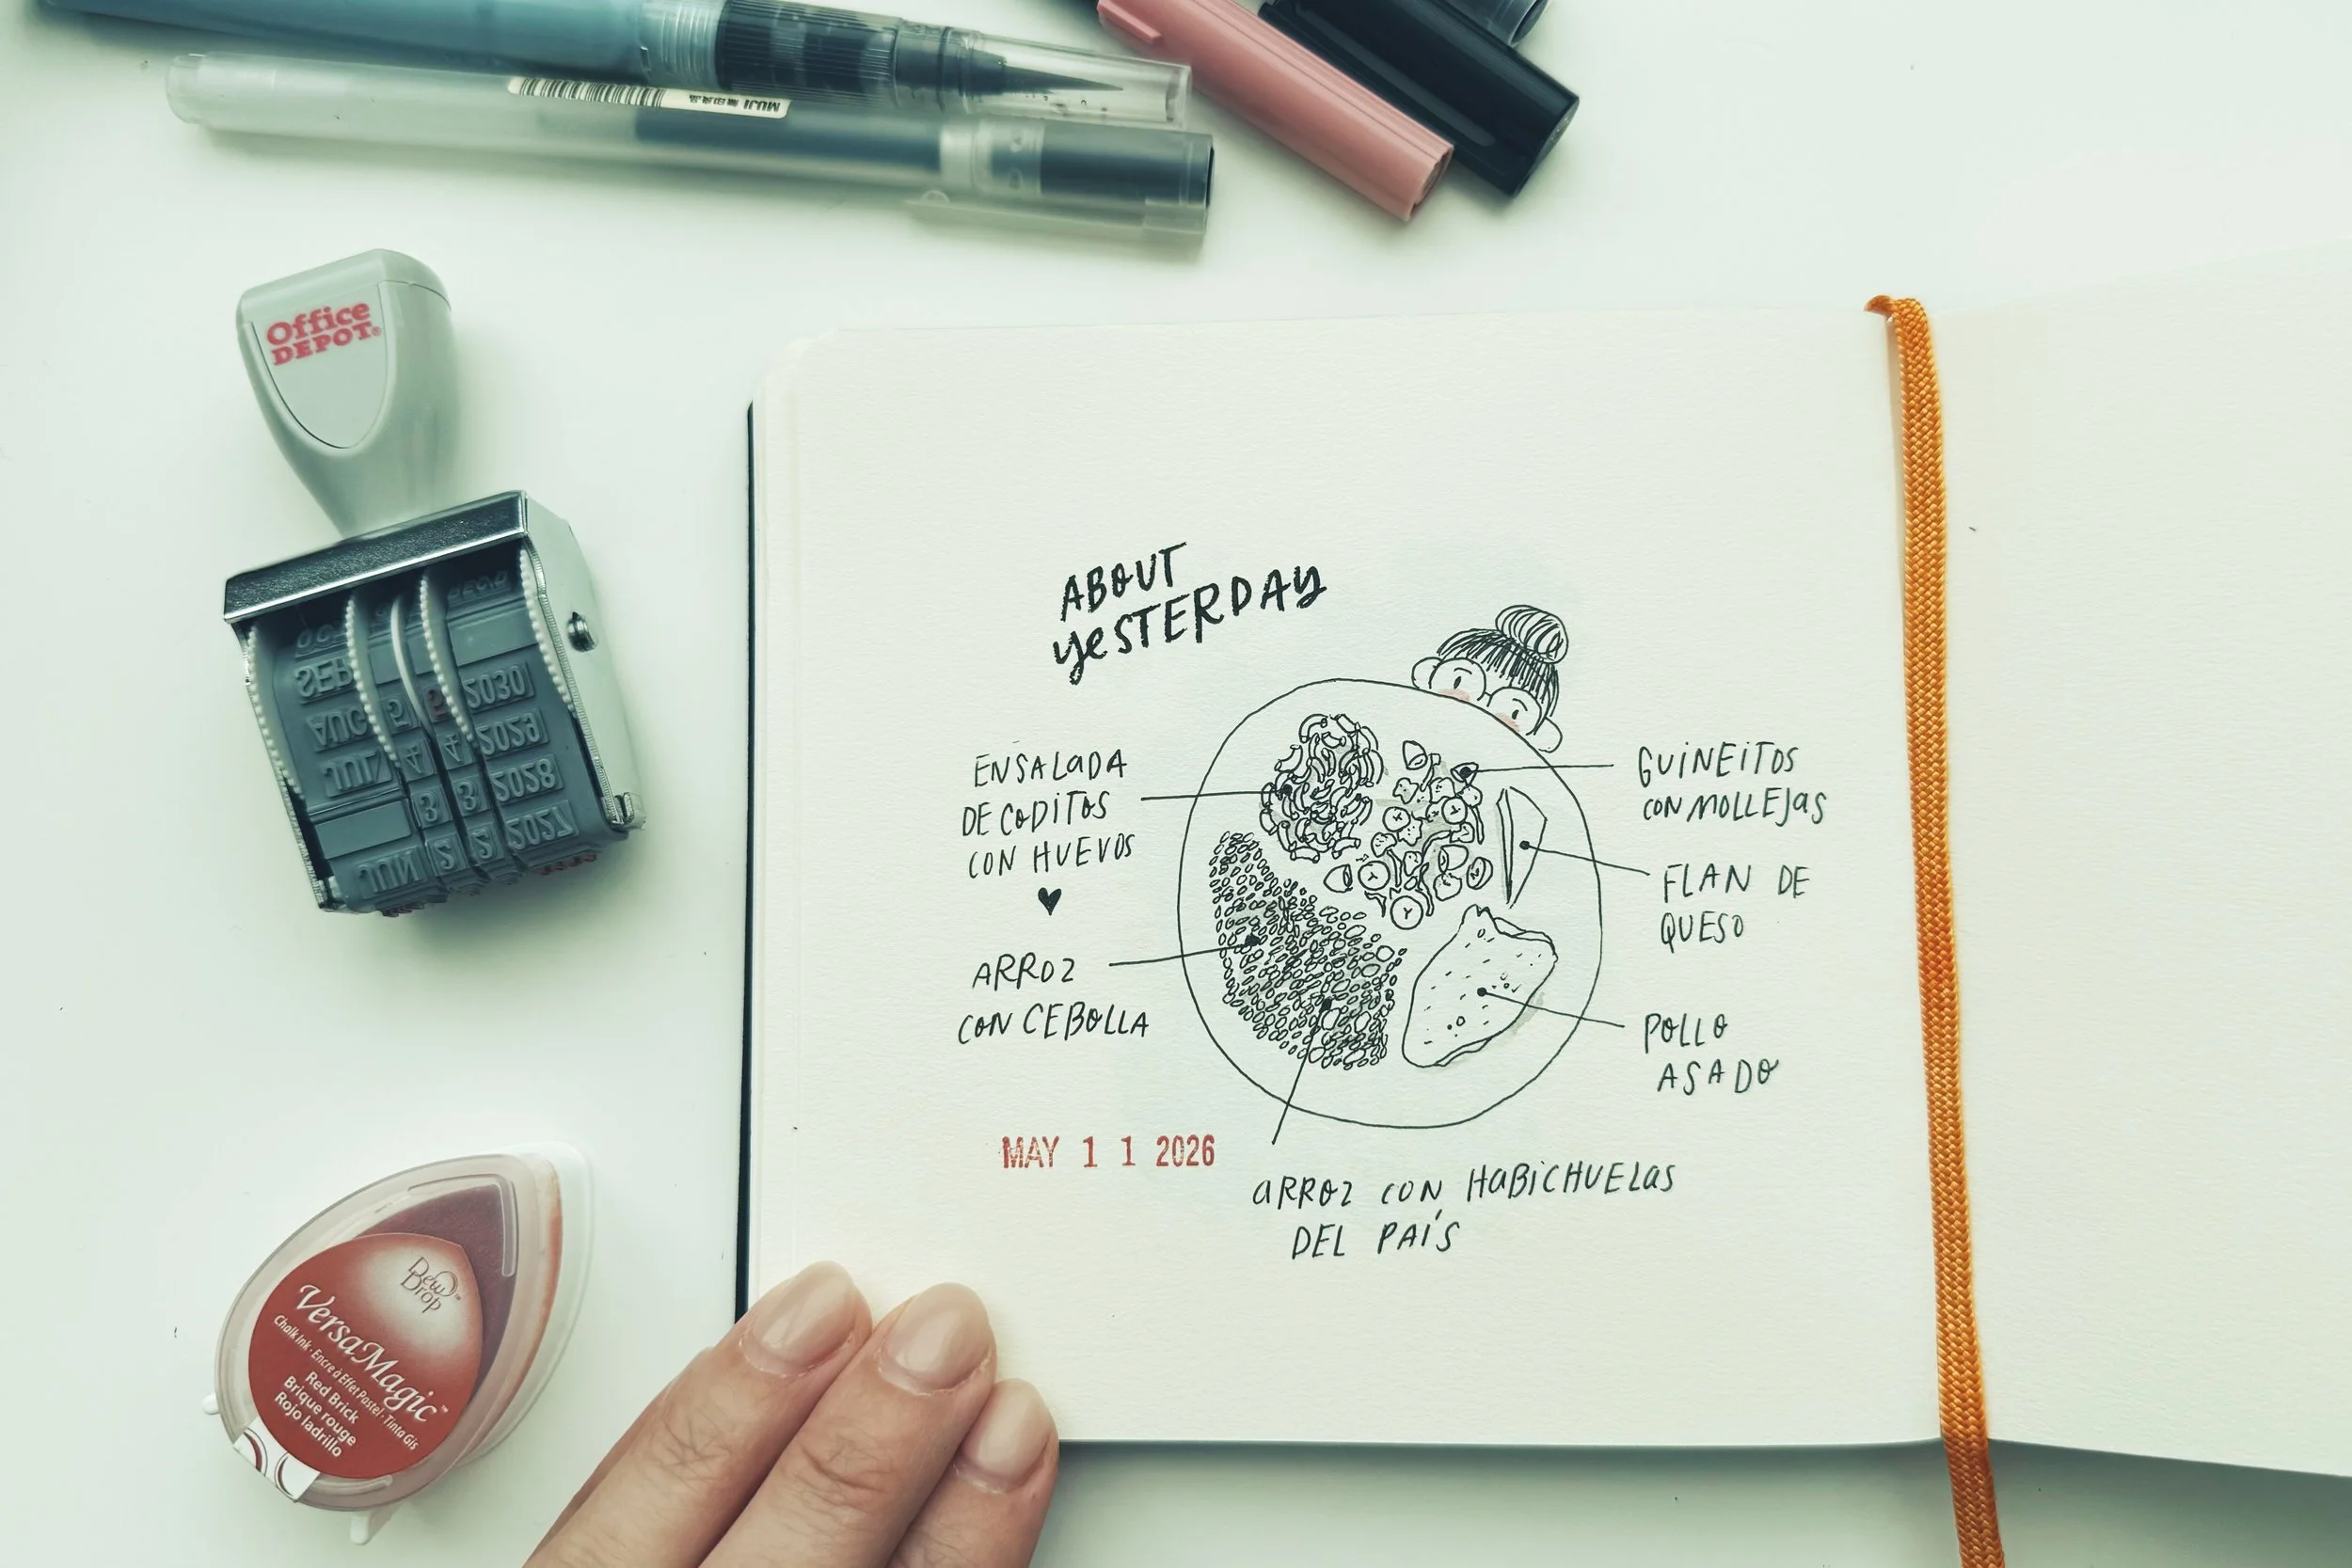 MUJI 無印良品
Office
DEPOT
SEP
AUG 5
2030
JUL 4 4 2029
3 3 2028
JUN 2 2 2027
ABOUT
yESTERDAY
ENSALADA
DE CODITOS
CON HUEVOS
ARROZ
CON CEBOLLA
GUINEITOS
CON MOLLEJAS
FLAN DE
QUESO
POLLO
ASADO
MAY 1 1 2026
ARROZ CON HABICHUELAS
DEL PAÍS
Dew
Drop
VersaMagic™
Chalk Ink · Encre à Effet Pastel · Tinta Gis
Red Brick
Brique rouge
Rojo ladrillo